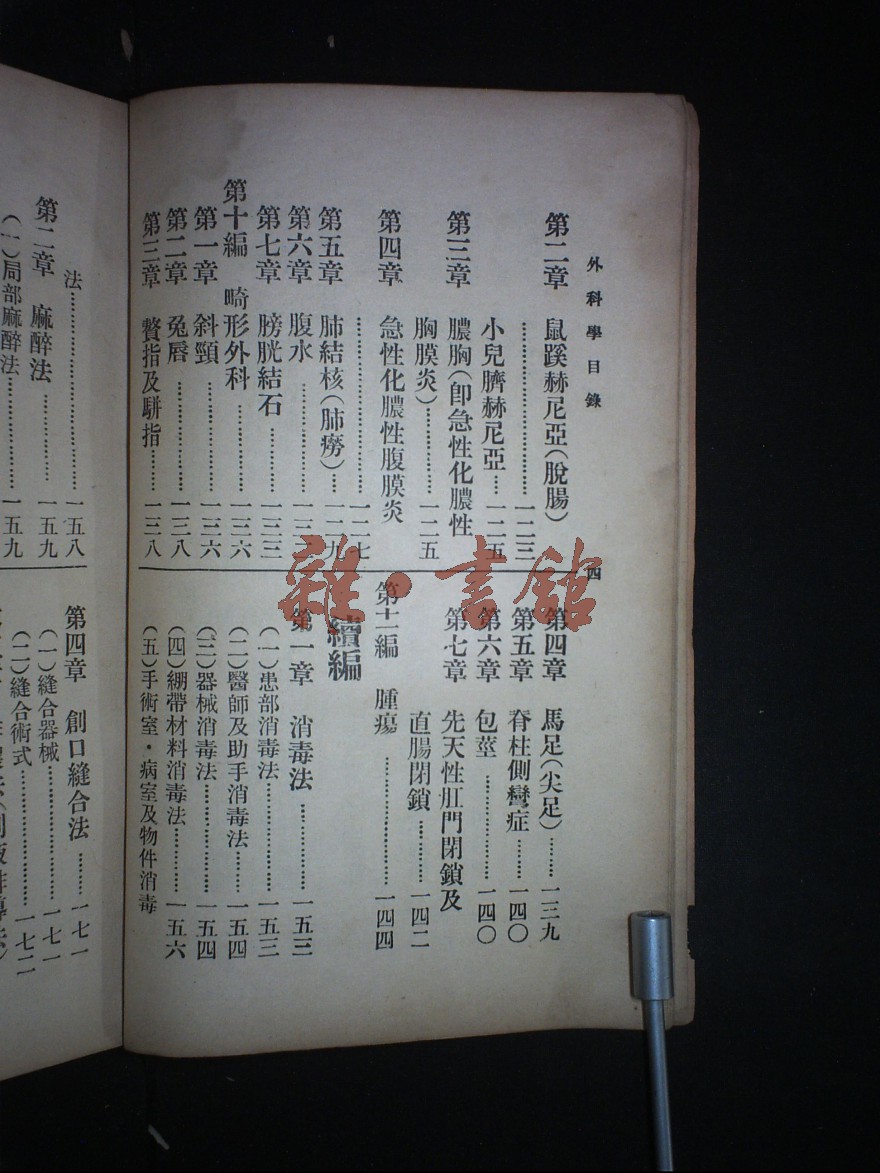 外科學目錄
四
第二章 鼠蹊赫尼亞(脫腸)
……一二三
小兒臍赫尼亞…一二五
第三章 膿胸(卽急性化膿性
胸膜炎)……一二五
第四章 急性化膿性腹膜炎
……一二七
第五章 肺結核(肺癆)…一二九
第六章 腹水……一三
第七章 膀胱結石……一三三
第十編 畸形外科……一三六
第一章 斜頸……一三六
第二章 兔唇……一三八
第三章 贅指及駢指……一三八
第四章 馬足(尖足)……一三九
第五章 脊柱側彎症……一四〇
第六章 包莖……一四〇
第七章 先天性肛門閉鎖及
直腸閉鎖……一四二
第十一編 腫瘍……一四四
續編
第一章 消毒法……一五三
(一)患部消毒法……一五三
(二)醫師及助手消毒法…一五四
(三)器械消毒法……一五四
(四)綳帶材料消毒法……一五六
(五)手術室·病室及物件消毒
法……一五八
第二章 麻醉法……一五九
(一)局部麻醉法……一五九
第四章 創口縫合法……一七一
(一)縫合器械……一七一
(二)縫合術式……一七二
雜·書館